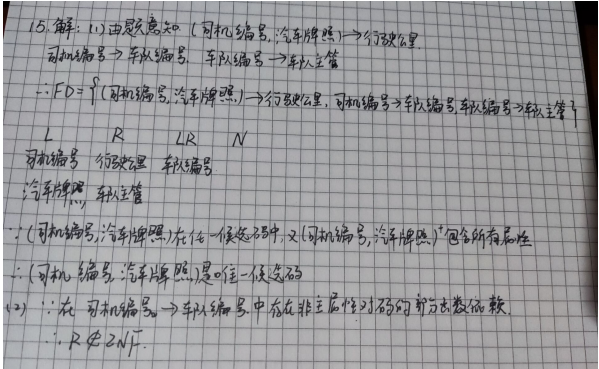 15.解：(1)由题意知 (司机编号,汽车牌照)→行驶公里
司机编号→车队编号, 车队编号→车队主管
∴FD={(司机编号,汽车牌照)→行驶公里,司机编号→车队编号,车队编号→车队主管}
L R LR N
司机编号 行驶公里 车队编号
汽车牌照 车队主管
∵(司机编号,汽车牌照)在任一候选码中,又(司机编号,汽车牌照)⁺包含所有属性
∴(司机编号,汽车牌照)是唯一候选码
(2) ∵在 司机编号→车队编号 中存在非主属性对码的部分函数依赖.
∴R∉2NF.